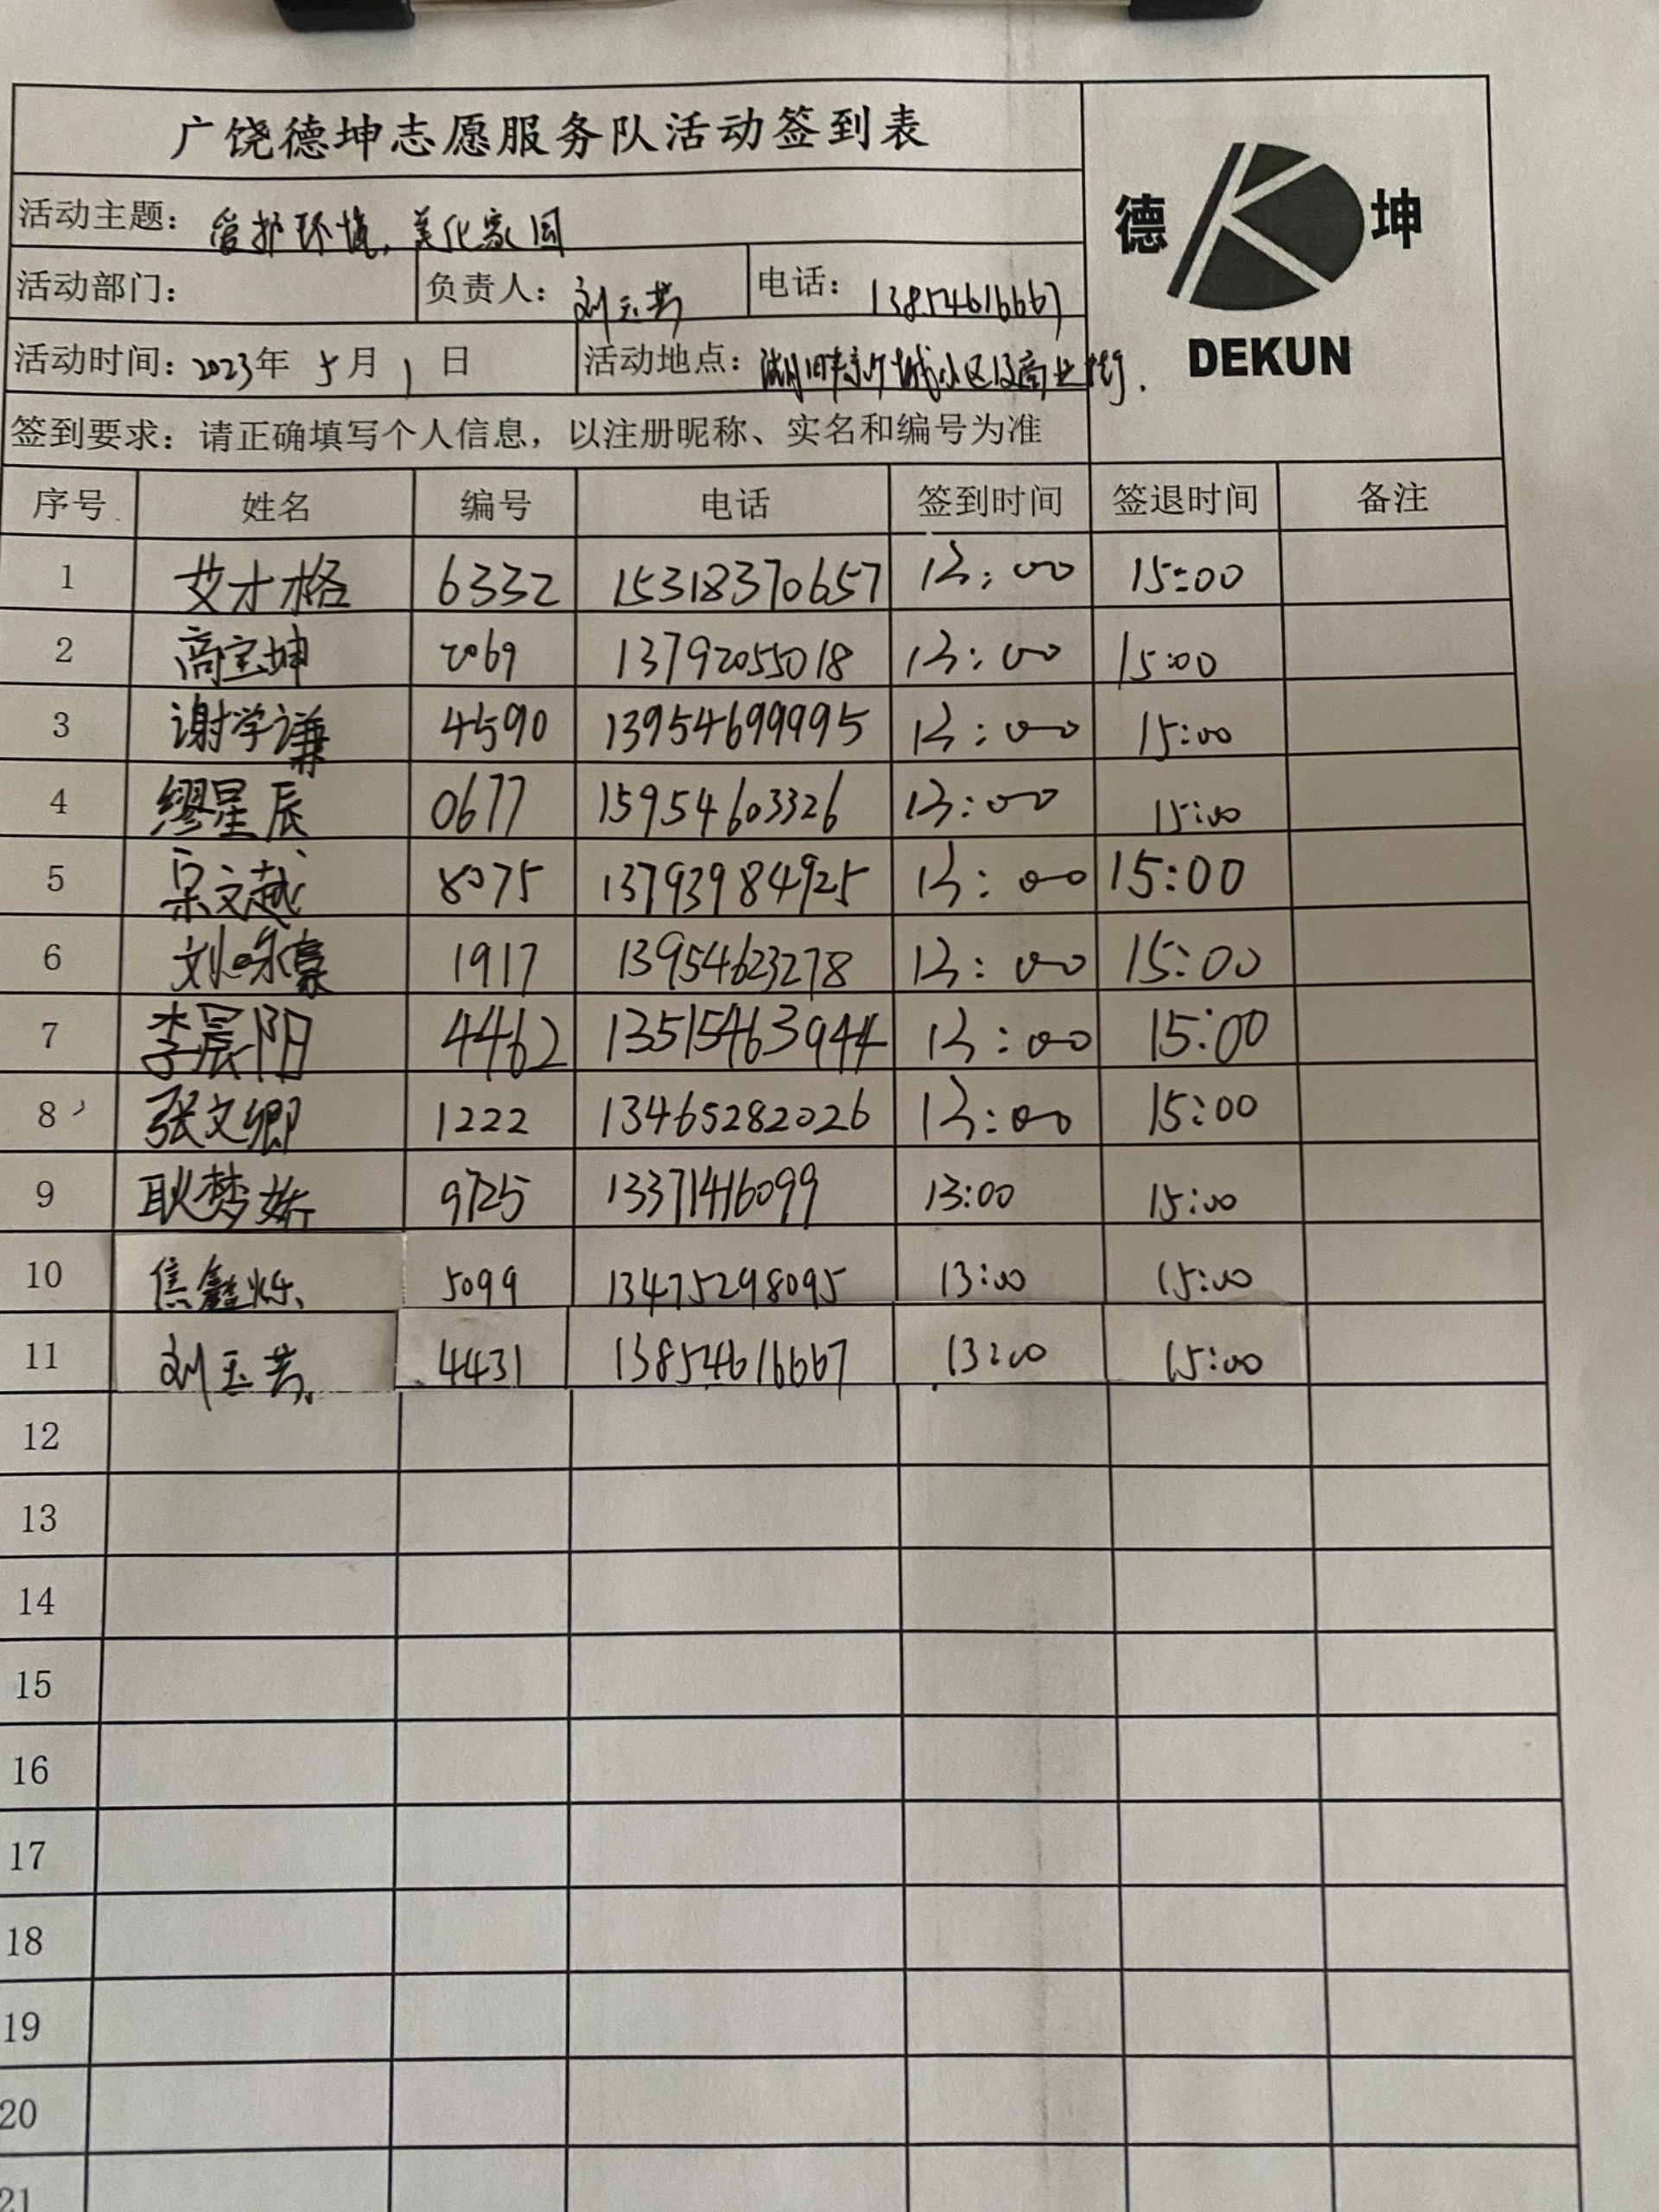 广饶德坤志愿服务队活动签到表
德 坤
DEKUN
活动主题：爱护环境，美化家园
活动部门： 负责人：刘玉芸 电话：13854616667
活动时间：2023年 5月 1 日 活动地点：小区及商业街.
签到要求：请正确填写个人信息，以注册昵称、实名和编号为准
序号 姓名 编号 电话 签到时间 签退时间 备注
1 艾才格 6332 15318370657 13:00 15:00
2 商宝坤 2069 13792055018 13:00 15:00
3 谢学谦 4590 13954699995 13:00 15:00
4 缪星辰 0677 15954603326 13:00 15:00
5 宋文越 8075 13793984925 13:00 15:00
6 刘咏豪 1917 13954623278 13:00 15:00
7 李晨阳 4462 13515463944 13:00 15:00
8 张文卿 1222 13465282026 13:00 15:00
9 耿梦娇 9725 13371416099 13:00 15:00
10 信鑫烁 5099 13475298095 13:00 15:00
11 刘玉芸 4431 13854616667 13:00 15:00
12
13
14
15
16
17
18
19
20
21